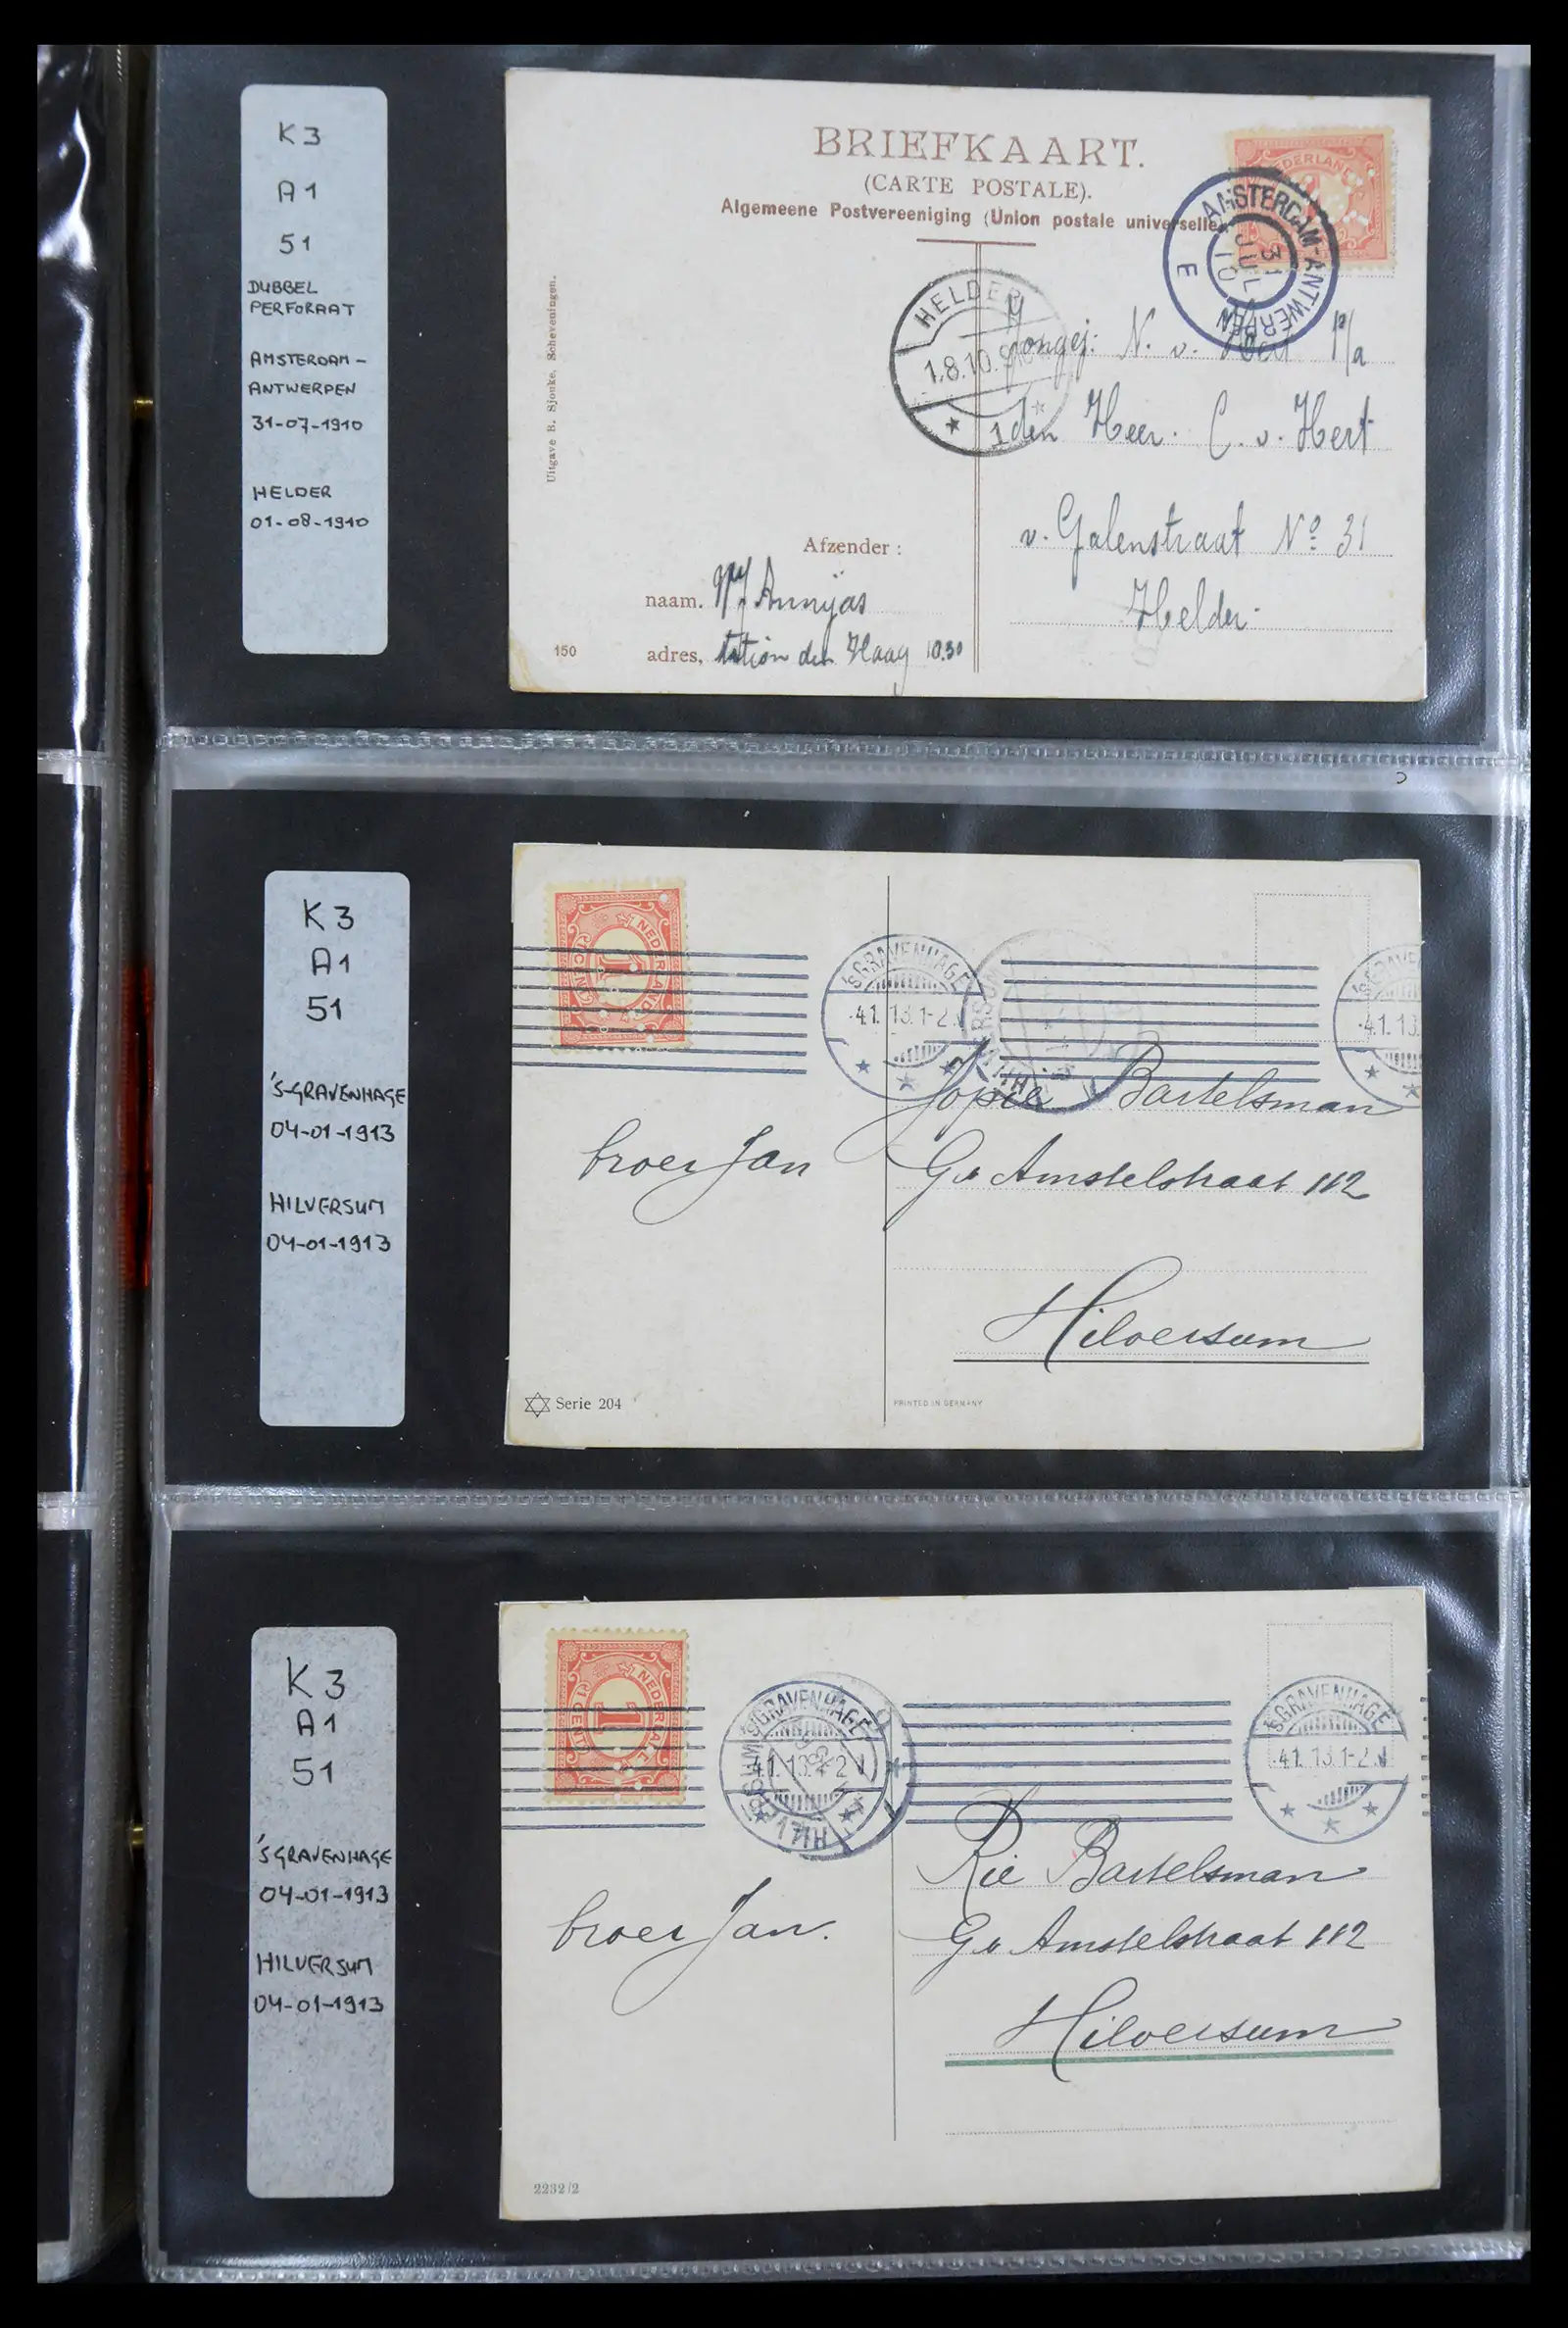 K3
A1
51
DUBBEL
PERFORAAT
AMSTERDAM-
ANTWERPEN
31-07-1910
HELDER
01-08-1910
BRIEFKAART.
(CARTE POSTALE).
Algemeene Postvereeniging (Union postale universelle)
NEDERLAND
AMSTERDAM-ANTWERPEN
31
JUL
10
E
HELDER
1.8.10.
1
Jongej: N. v. Hert P/a
den Heer. C. v. Hert
v. Galenstraat No 31
Helder.
Uitgave B. Sjouke, Scheveningen.
Afzender:
naam.
adres, tation den Haag 10.30
150
K3
A1
51
'S-GRAVENHAGE
04-01-1913
HILVERSUM
04-01-1913
NEDERLAND
1
1 CENT
'SGRAVENHAGE
4.1.13.1-2.N
'SGRAVENHAGE
4.1.13
Jopie Bartelsman
G. v. Amstelstraat 112
Hilversum
broer Jan
Serie 204
PRINTED IN GERMANY
K3
A1
51
'SGRAVENHAGE
04-01-1913
HILVERSUM
04-01-1913
NEDERLAND
1
1 CENT
'SGRAVENHAGE
HILVERSUM
'SGRAVENHAGE
4.1.13.1-2.N
Rie Bartelsman
G. v. Amstelstraat 112
Hilversum
broer Jan.
2232/2